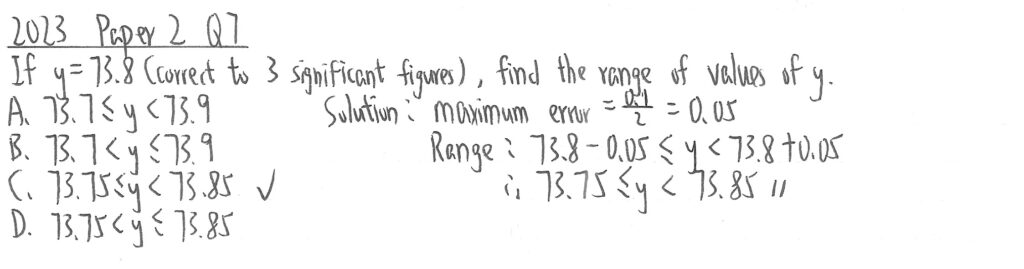 2023 Paper 2 Q7
If y = 73.8 (correct to 3 significant figures), find the range of values of y.
A. 73.7 ≤ y < 73.9
Solution: maximum error = 0.1/2 = 0.05
B. 73.7 < y ≤ 73.9
Range: 73.8 - 0.05 ≤ y < 73.8 + 0.05
C. 73.75 ≤ y < 73.85 ✓
∴ 73.75 ≤ y < 73.85 //
D. 73.75 < y ≤ 73.85